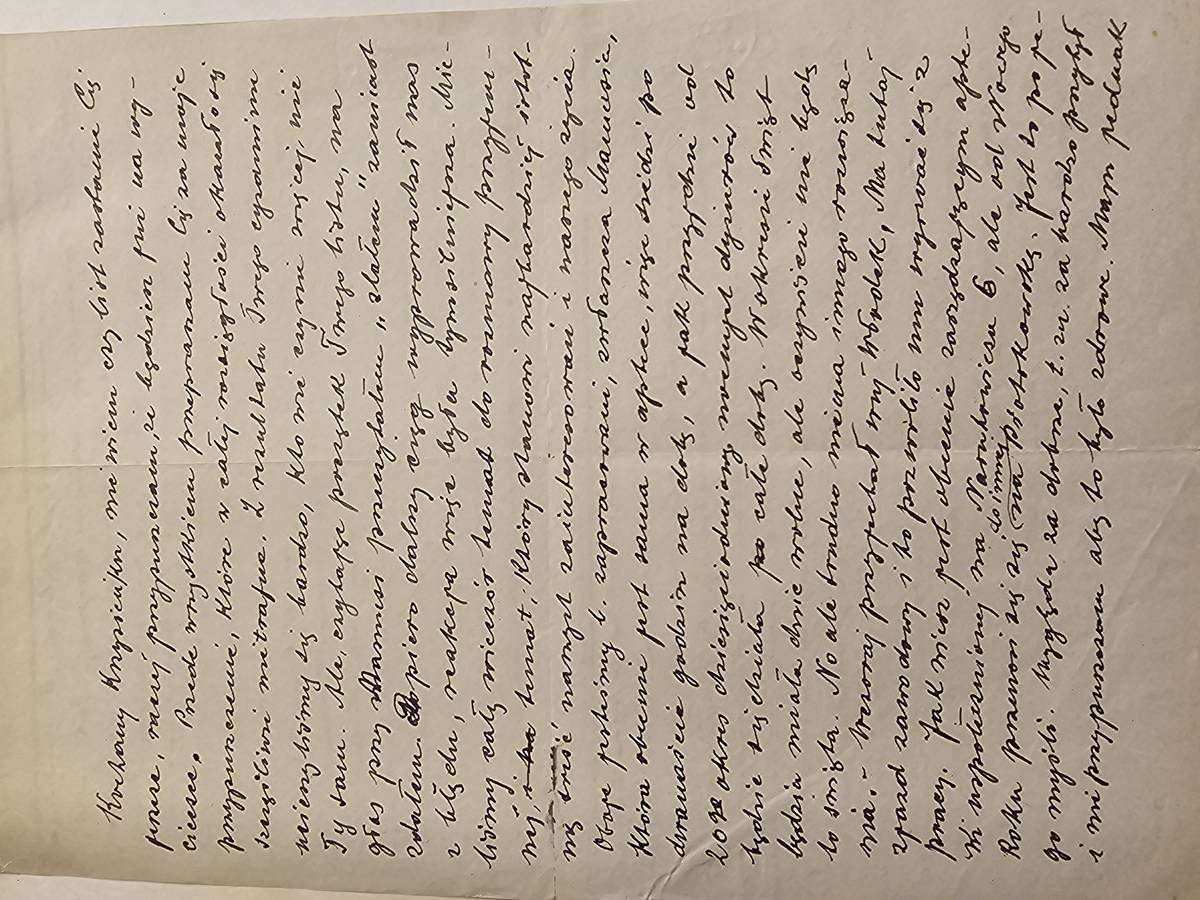 Kochany Krzysieńku, nie wiem czy list zastanie Cię
jeszcze, raczej przypuszczam, że będziesz już na wy-
cieczce. Przede wszystkiem przepraszam Cię za moje
przypuszczenie, które w całej rozciągłości okazało się
szczęśliwie nietrafne. Z rezultatu Twego egzaminu
ucieszyliśmy się bardzo, kto wie czy nie więcej niż
Ty sam. Ale, czytając początek Twego listu, na
głos przy Mamusi przeczytałem „zlałem" zamiast
zdałem. Dopiero dalszy ciąg wyprowadził nas
z błędu, reakcja więc była tym silniejsza. Mie-
liśmy cały wieczór temat do rozmowy przyjem-
nej, temat, który stanowi najbardziej istot-
ną treść naszych zainteresowań i naszego życia.
Oboje jesteśmy b. zapracowani, zwłaszcza Mamusia,
która obecnie jest sama w aptece, więc siedzi po
dwanaście godzin na dobę, a jak przyjdzie od
20 okres dziesięciodniowy nocnych dyżurów to
będzie siedziała całe doby. W okresie świąt
będzie miała dnie wolne, ale oczywiście nie będą
to święta. No ale trudno niema innego rozwiąza-
nia. - Wczoraj przyjechał wuj Włodek, Ma tutaj
zjazd zawodowy i to pozwoliło mu wyrwać się z
pracy. Jak wiesz jest obecnie zarządzającym apte-
ki uspołecznionej na Narutowicza 6, ale od Nowego
Roku przenosi się do innej na Piotrkowską. Jest to po je-
go myśli. Wygląda za dobrze, t. zn. za bardzo przytył
i nie przypuszczam aby to było zdrowe. Mam jednak